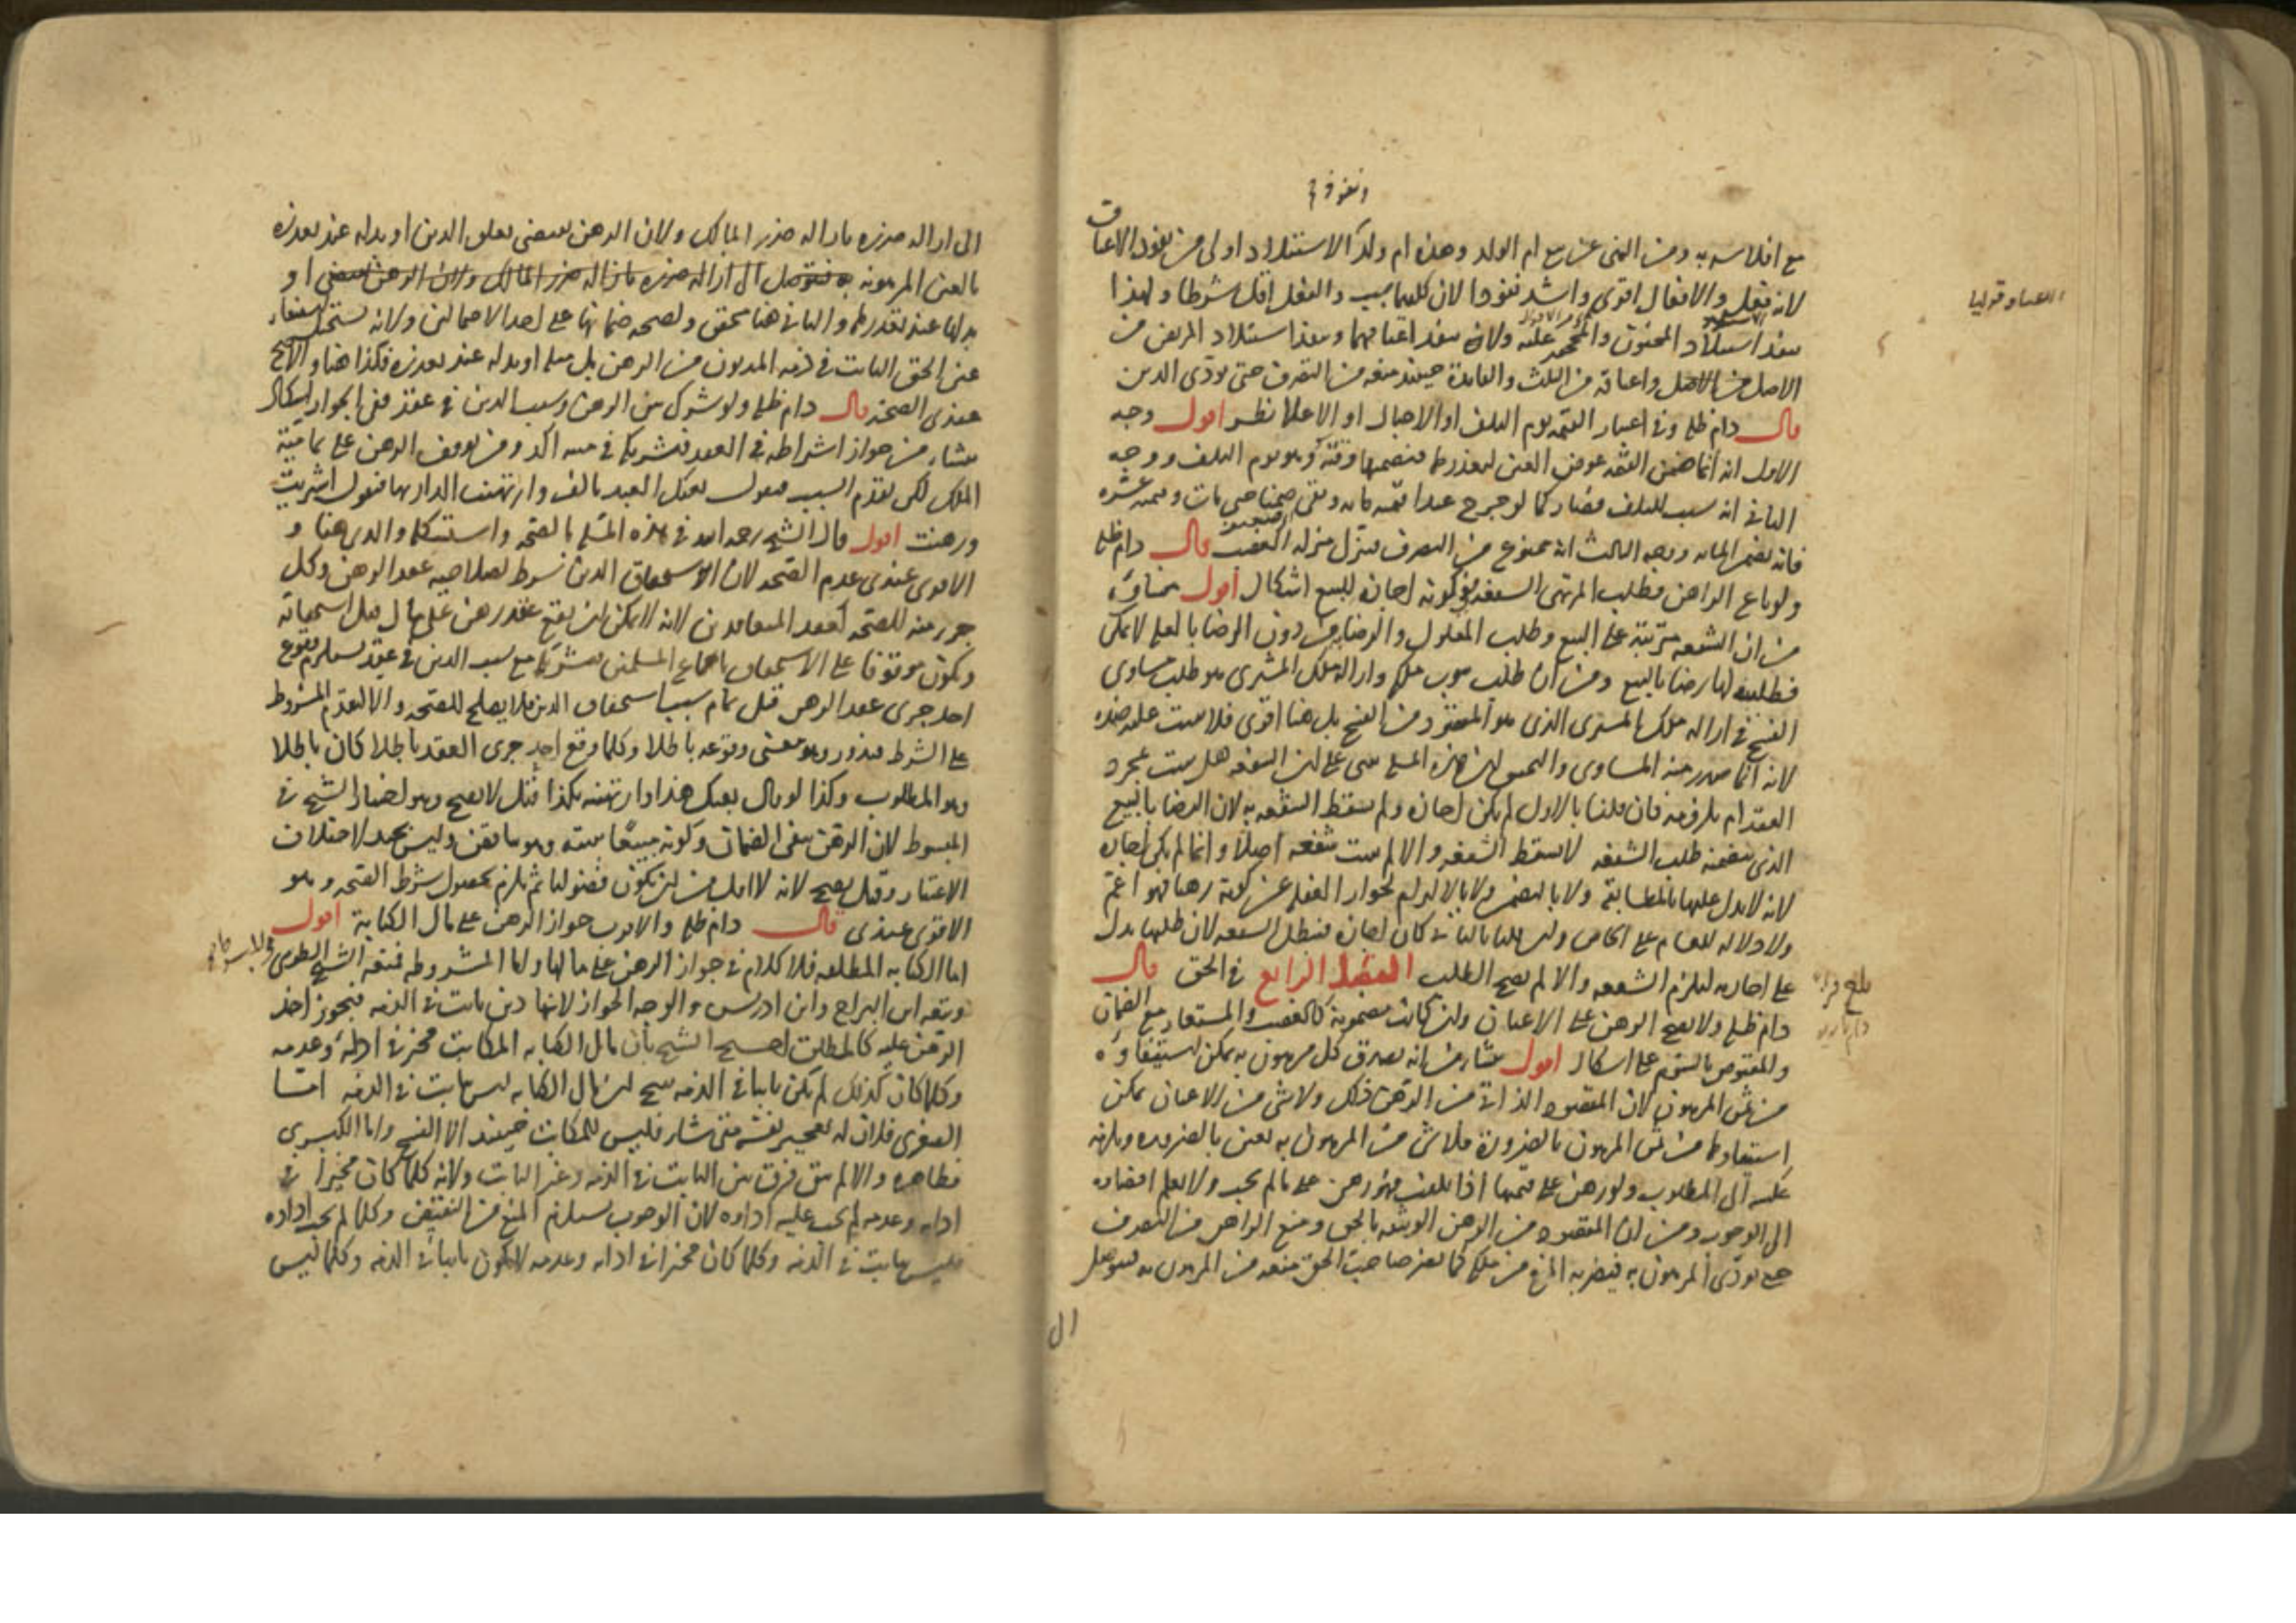 ونفوذ
مع افلاسه به ومن النهى عن بيع ام الولد وهذه ام ولد الاستيلاد اولى من نفوذ الاعتاق
لانه فعل والافعال اقوى واشد نفوذا لان كليهما سبب والفعل اقل شروطا ولهذا
ينفذ استيلاد المجنون والمحجور عليه ولا ينفذ اعتاقهما وينفذ استيلاد المريض من
الاصل واعتاقه من الثلث والفائدة حينئذ منعه من التصرف حتى يودى الدين
قال دام ظله وفى اعتبار القيمة يوم التلف او الاحبال او الاعلا نظر اقول وجه
الاول انه انما ضمن القيمة عوض العين لتعذرها فيضمنها وقته وهو يوم التلف ووجه
الثانى انه سبب التلف فصار كما لو جرح عبدا قيمته مائة وبقى حتى مات وقيمته عشرة
فانه يضمن المائة ووجه الثالث انه ممنوع من التصرف فينزل منزلة الغصب قال دام ظله
ولو باع الراهن فطلب المرتهن الشفعة ففى كونه اجازة للبيع اشكال اقول ينشا
من ان الشفعة مترتبة على البيع وطلب المعلول والرضا به من دون الرضا بالعلة لا يمكن
فطلبه لها رضا بالبيع ومن ان طلب ملكه وازالة ملك المشترى هو طلب مساوى
الفسخ فى ازالة ملك المشترى الذى هو المقصود من الفسخ بل هنا اقوى فلا يثبت عليه ضده
لانه انما صدر منه المساوى والتحقيق ان هذه المسئلة مبنى على ان الشفعة هل يثبت بمجرد
العقد ام بلزومه فان قلنا بالاول لم يكن اجازة ولم يسقط الشفعة به لان الرضا بالبيع
الذى يتضمنه طلب الشفعة لا يسقط الشفعة والا لم يثبت شفعة اصلا وانما لم يكن اجازة
لانه لا يدل عليها بالمطابقة ولا بالتضمن ولا بالالتزام لجواز الغفلة عن كونه رهنا فهو اعم
ولا دلالة للعام على الخاص وان قلنا بالثانى كان اجازة فتبطل الشفعة لان طلبها يدل
على اجازته ليلزم الشفعة والا لم يصح الطلب الفصل الرابع فى الحق قال
دام ظله ولا يصح الرهن على الاعيان وان كانت مضمونة كالغصب والمستعار مع الضمان
والمقبوض بالسوم على اشكال اقول ينشا من انه يصدق كل مرهون به يمكن استيفاؤه
من ثمن المرهون لان المقصود الذاتى من الرهن ذلك ولا شى من الاعيان يمكن
استيفاؤها من ثمن المرهون بالضرورة فلا شى من المرهون به بعين بالضرورة ويلزمه
عكسه الى المطلوب ولو رهن على قيمتها اذا تلفت فهو رهن على ما لم يجب ولا يعلم افضاؤه
الى الوجوب ومن ان المقصود من الرهن الوثيقة بالحق ومنع الراهن من التصرف
حتى يودى المرهون به فيضر به المنع من ملكه كما يضر صاحب الحق منعه من المرهون به فيتوصل
الى
الى ازالة ضرره بازالة ضرر المالك ولان الرهن يقتضى تعلق الدين او بدله عند تعذره
بالعين المرهونة به فيتوصل الى ازالة ضرره بازالة ضرر المالك ولان الرهن يقتضى او
بدلها عند تعذرها والثانى هنا متحقق ولصحة ضمانها على احد الاحتمالين ولانه يستحق استيفاء
عين الحق الثابت فى ذمة المديون من الرهن بل مثله او بدله عند تعذره فكذا هنا والاصح
عندى الصحة قال دام ظله ولو شرك بين الرهن وسبب الدين فى عقد ففى الجواز اشكال
ينشا من جواز اشتراطه فى العقد فتشريكه فى متنه اكد ومن توقف الرهن على تمامية
الملك لكن يقدم السبب فيقول بعتك العبد بالف وارتهنت الدار بها فيقول اشتريت
ورهنت اقول قال الشيخ رحمه الله فى هذه المسئلة بالصحة واستشكله والدى هنا و
الاقوى عندى عدم الصحة لان الاستحقاق الدين شرط لصلاحية عقد الرهن وكل
جزء منه للصحة كعقد المتعاقدين لانه لا يمكن ان يقع عقد رهن على مال قبل استحقاقه
ويكون موقوفا على الاستحقاق باجماع المسلمين فتشريكه مع سبب الدين فى عقد يستلزم وقوع
احد جزءى عقد الرهن قبل تمام سبب استحقاق الدين فلا يصلح للصحة والا لتقدم المشروط
على الشرط فيدور وهو معنى وقوعه باطلا وكلما وقع احد جزءى العقد باطلا كان باطلا
وهو المطلوب وكذا لو قال بعتك هذا وارتهنته بكذا قيل لا يصح وهو اختيار الشيخ فى
المبسوط لان الرهن ينفى الضمان وكونه مبيعا يثبته وهو تناقض وليس بجيد لاختلاف
الاعتبار وقيل يصح لانه لا اقل من ان يكون فضوليا ثم يلزم بحصول شرط الصحة وهو
الاقوى عندى قال دام ظله والاقرب جواز الرهن على مال الكتابة اقول
اما الكتابة المطلقة فلا كلام فى جواز الرهن على مالها واما المشروطة فمنعه الشيخ الطوسى فى المبسوط
وتبعه ابن البراج وابن ادريس والوجه الجواز لانها دين ثابت فى الذمة فيجوز اخذ
الرهن عليه كالمطلقة احتج الشيخ بان مال الكتابة المكاتب مخير فى ادائه وعدمه
وكلما كان كذلك لم يكن ثابتا فى الذمة ينتج ان مال الكتابة ليس ثابت فى الذمة اما
الصغرى فلان له تعجيز نفسه متى شاء فليس للمكاتب حينئذ الا الفسخ واما الكبرى
فظاهرة والا لم يبق فرق بين الثابت فى الذمة وغير الثابت ولانه كلما كان مخيرا فى
ادائه وعدمه لم يجب عليه اداؤه لان الوجوب يستلزم المنع من النقيض وكلما لم يجب اداؤه
فليس ثابت فى الذمة وكلما كان مخيرا فى ادائه وعدمه لا يكون ثابتا فى الذمة وكلما ليس